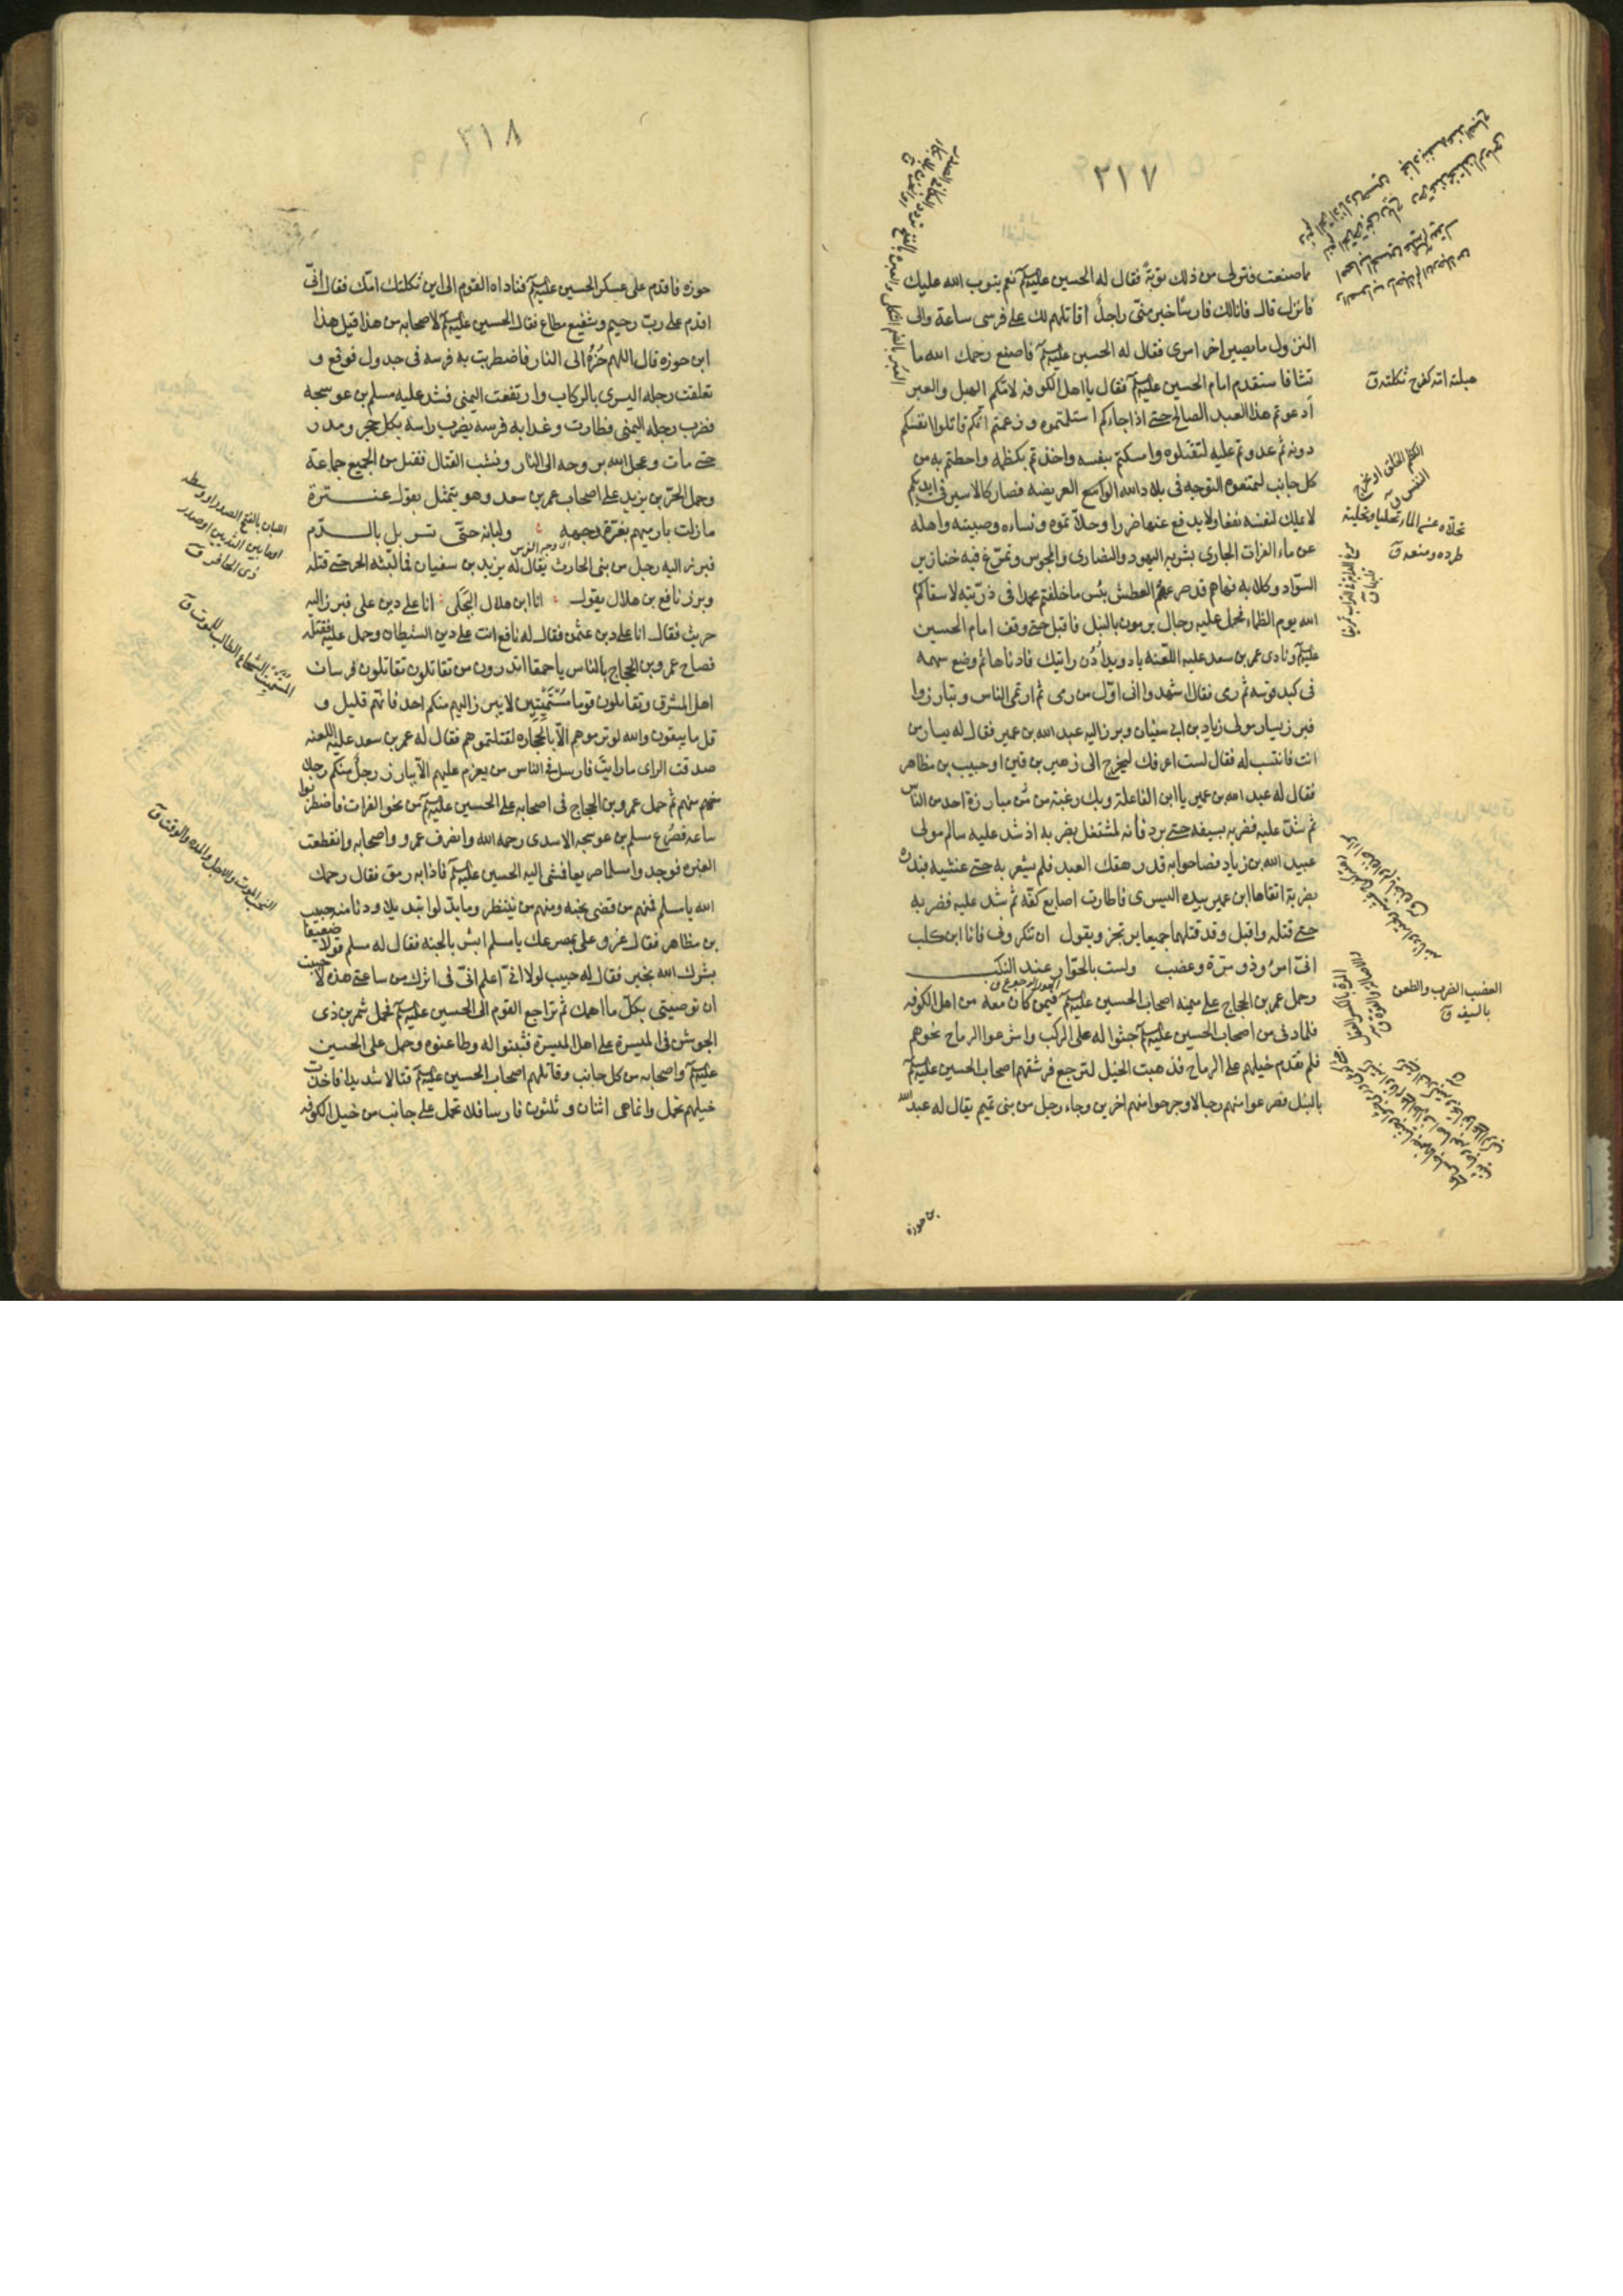 ٢١٧
مما صنعت فترى لى من ذلك توبةً فقال له الحسين عليه السلم نعم يتوب الله عليك
فانزل قال فانا لك فارسًا خير منّى راجلٌ اقاتلهم لك على فرسى ساعة والى
النزول ما يصير اخر امرى فقال له الحسين عليه السلم فاصنع رحمك الله ما
فاستقدم امام الحسين عليه السلم فقال يا اهل الكوفه لامّكم الهبل والعبر
أدعوتم هذا العبد الصالح حتى اذا جاءكم اسلمتموه وزعمتم انّكم قاتلوا انفسكم
دونه ثم عدوتم عليه لتقتلوه وامسكتم بنفسه واخذتم بكظمه واحطتم به من
كل جانب لتمنعوه التوجه فى بلاد الله الواسع العريضه فصار كالاسير فى ايديكم
لا يملك لنفسه نفعا ولا يدفع عنها ضرا وحلّأتموه ونساءه وصبيته واهله
عن ماء الفرات الجارى يشربه اليهود والنصارى والمجوس وتمرّغ فيه خنازير
السّواد وكلابه فها هم قد صرعهم العطش بئس ما خلفتم محمدا فى ذريّته لا سقاكم
الله يوم الظماء فحمل عليه رجال يرمون بالنبل فاقبل حتى وقف امام الحسين
عليه السلم ونادى عمر بن سعد عليه اللعنه يا دويد أدن رايتك فادناها ثم وضع سهمه
فى كبد قوسه ثم رمى فقال اشهدوا انى اوّل من رمى ثم ارتمى الناس وتبارزوا
فبرز يسار مولى زياد بن ابى سفيان وبرز اليه عبد الله بن عمير فقال له يسار من
انت فانتسب له فقال لست اعرفك ليخرج الى زهير بن قين او حبيب بن مظاهر
فقال له عبد الله بن عمير يا ابن الفاعلة وبك رغبة من مبارزة احد من الناس
ثم شدّ عليه فضربه بسيفه حتى برد فانه لمشتغل بضربه اذ شد عليه سالم مولى
عبيد الله بن زياد فصاحوا به قد رهقك العبد فلم يشعر به حتى غشيه فبدره
بضربة اتقاها ابن عمير بيده اليسرى فاطارت اصابع كفّه ثم شد عليه فضربه
حتى قتله واقبل وقد قتلهما جميعا يرتجز ويقول ان تنكرونى فانا ابن كلب
انّى امرُ وذو مرّة وعضب ولست بالخوّار عند النكب
وحمل عمر بن الحجاج على ميمنه اصحاب الحسين عليه السلم فيمن كان معه من اهل الكوفه
فلما دنى من اصحاب الحسين عليه السلم جثوا له على الركب واشرعوا الرماح نحوهم
فلم تقدم خيلهم على الرماح فذهبت الخيل لترجع فرشقهم اصحاب الحسين عليه السلم
بالنبل فصرعوا منهم رجالا وجرحوا منهم اخرين وجاء رجل من بنى تميم يقال له عبد الله
بن حوزه
هبلته امه كفرح ثكلته ق
الكظم الحلق او مخرج
النفس ق
حلّأه عن الماء تحليا وتحلية
طرده ومنعه ق
العضب الضرب والطعن
بالسيف ق
٢١٨
حوزه فاقدم على عسكر الحسين عليه السلم فناداه القوم الى اين ثكلتك امّك فقال انّى
اقدم على ربّ رحيم وشفيع مطاع فقال الحسين عليه السلم لاصحابه من هذا قيل هذا
ابن حوزه قال اللهم حُزْه الى النار فاضطربت به فرسه فى جدول فوقع و
تعلقت رجله اليسرى بالركاب وارتفعت اليمنى فشد عليه مسلم بن عوسجه
فضرب رجله اليمنى فطارت وغدا به فرسه يضرب راسه بكل حجر ومدر
حتى مات وعجل الله بروحه الى النار ونشب القتال فقتل من الجميع جماعة
وحمل الحرّ بن يزيد على اصحاب عمر بن سعد وهو يتمثل بقول عنترة
ما زلت بارميهم بغرّة وجهه ولبانه حتّى تسربل بالدّم
فبرز اليه رجل من بنى الحارث يقال له يزيد بن سفيان فما لبّثه الحر حتى قتله
وبرز نافع بن هلال يقول انا ابن هلال البجلى انا على دين على فبرز اليه
حريث فقال انا على دين عثمن فقال له نافع انت على دين الشيطان وحمل عليه فقتله
فصاح عمرو بن الحجاج بالناس يا حمقا اتدرون من تقاتلون تقاتلون فرسان
اهل المشرق وتقاتلون قوما مُسْتَمِيتِين لا يبرز اليهم منكم احد فانّهم قليل و
قل ما يبقون والله لو ترموهم الّا بالحجاره لقتلتموهم فقال له عمر بن سعد عليه اللعنه
صدقت الراى ما رايت فارسل فى الناس من يعزم عليهم الّا يبارز رجلٌ منكم رجلا
منهم ثم حمل عمرو بن الحجاج فى اصحابه على الحسين عليه السلم من نحو الفرات فاضطربوا
ساعه فصُرع مسلم بن عوسجه الاسدى رحمه الله وانصرف عمرو واصحابه وانقطعت
الغبره فوجدوا مسلما صريعا فمشى اليه الحسين عليه السلم فاذا به رمق فقال رحمك
الله يا مسلم فمنهم من قضى نحبه ومنهم من ينتظر وما بدّلوا تبديلا ودنا منه حبيب
بن مظاهر فقال عز على بمصرعك يا مسلم ابشر بالجنه فقال له مسلم قولا ضعيفا
بشّرك الله بخير فقال له حبيب لولا انّى اعلم انّى فى اثرك من ساعتى هذه لاحببت
ان توصينى بكلّ ما اهمك ثم تراجع القوم الى الحسين عليه السلم فحمل شمر بن ذى
الجوشن فى الميسرة على اهل الميسرة فثبتوا له وطاعنوه وحمل على الحسين
عليه السلم واصحابه من كل جانب وقاتلهم اصحاب الحسين عليه السلم قتالا شديدا فاخذت
خيلهم تحمل وانما هى اثنان وثلثون فارسا فلا تحمل على جانب من خيل الكوفه
اللبان بالفتح الصدر او وسطه
او ما بين الثديين او صدر
ذى الحافر ق
المستميت الشجاع الطالب للموت ق
النحب الموت والاجل والمده والوقت ق